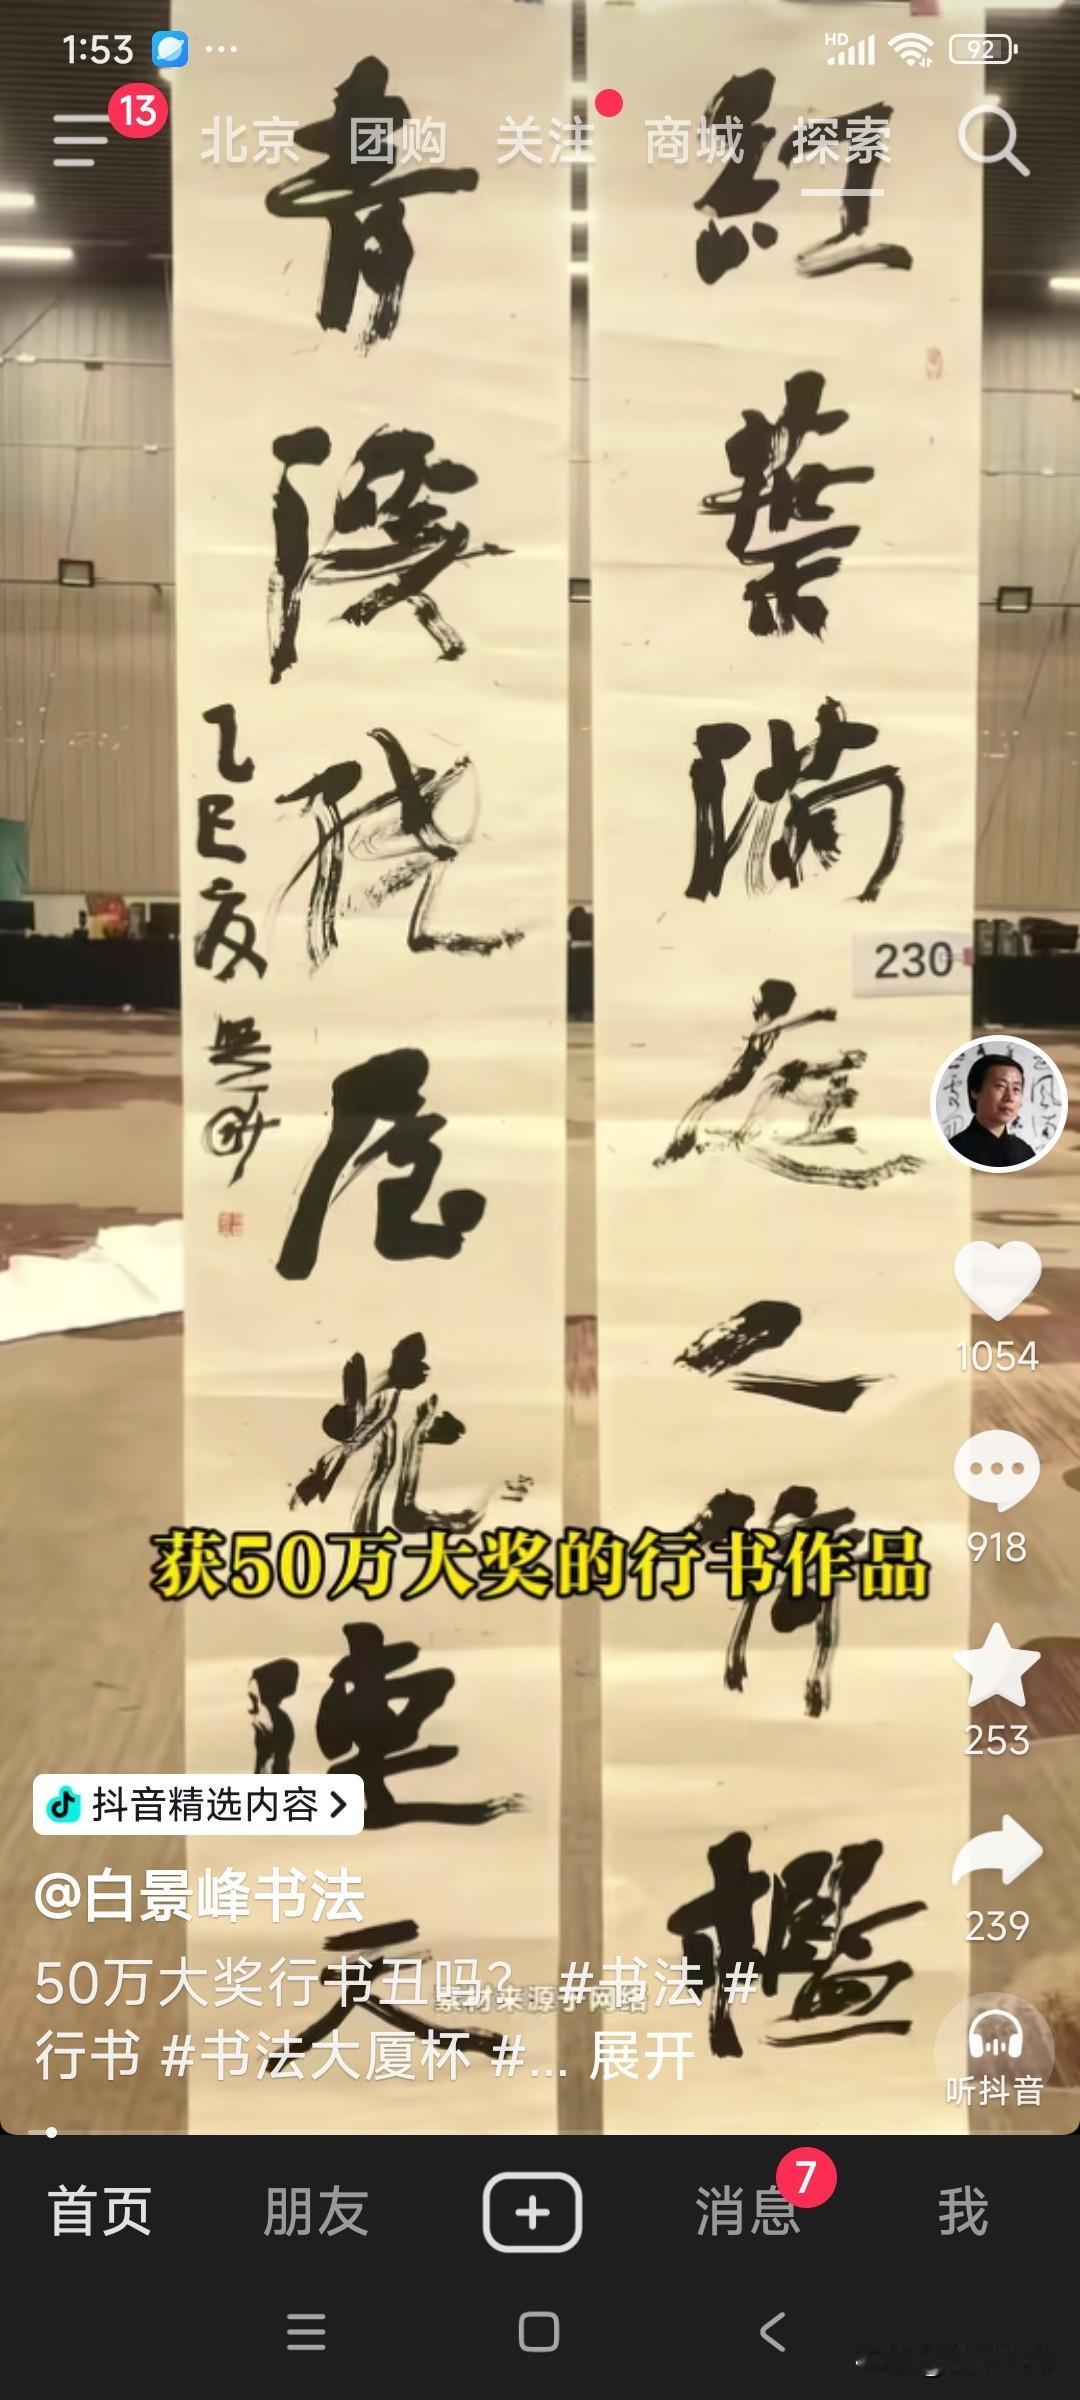 1:53
HD
92
13
北京 团购 关注 商城 探索
紅葉滿庭人倚檻
青溪
屋花連天
乙巳夏
230
1054
获50万大奖的行书作品
918
253
抖音精选内容
@白景峰书法
50万大奖行书丑吗？ #书法 #
素材来源于网络
行书 #书法大厦杯 #... 展开
239
听抖音
首页 朋友 消息 我
7